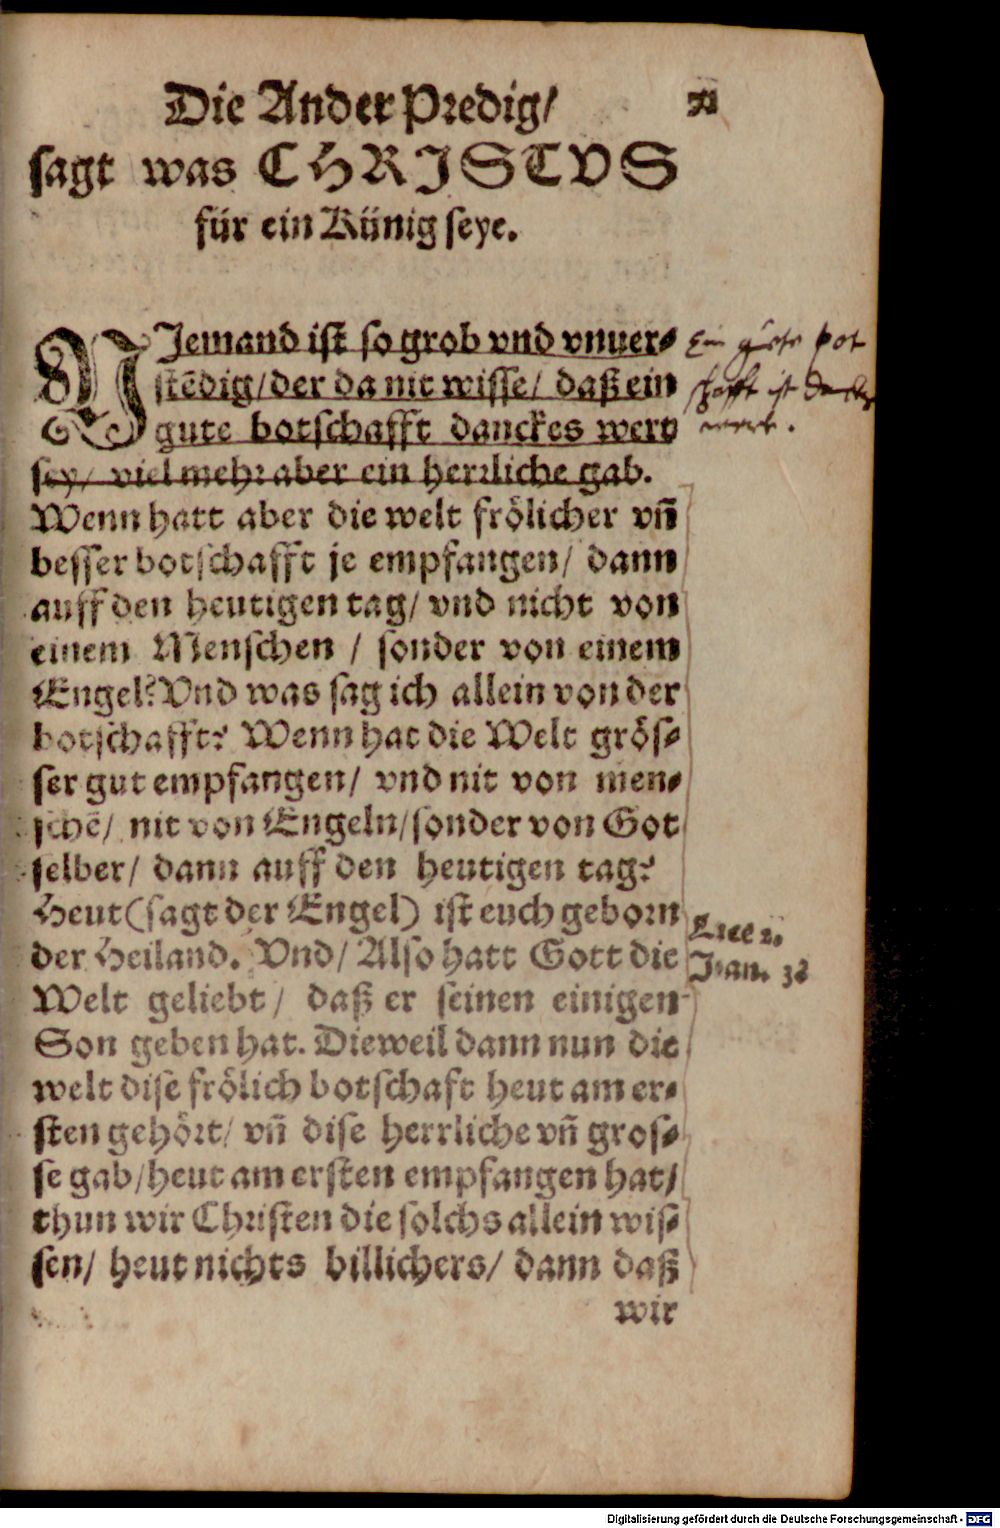 Die Ander Predig/
sagt was CHRISTVS
für ein Künig seye.
NJemand ist so grob vnd vnuer-
stēdig/der da nit wisse/ daß ein
gute botschafft danckes wert
sey/ viel mehr aber ein herrliche gab.
Wenn hatt aber die welt frölicher vn̄
besser botschafft je empfangen/ dann
auff den heutigen tag/ vnd nicht von
einem Menschen / sonder von einem
Engel? Vnd was sag ich allein von der
botschafft? Wenn hat die Welt grös-
ser gut empfangen/ vnd nit von men-
schē/ nit von Engeln/sonder von Got
selber/ dann auff den heutigen tag?
Heut (sagt der Engel) ist euch geborn
der Heiland. Vnd/ Also hatt Gott die
Welt geliebt/ daß er seinen einigen
Son geben hat. Dieweil dann nun die
welt dise frölich botschaft heut am er-
sten gehört/ vn̄ dise herrliche vn̄ gros-
se gab/heut am ersten empfangen hat/
thun wir Christen die solchs allein wis-
sen/ heut nichts billichers/ dann daß
wir
Ein gute bot
schafft ist danckes
wert.
Luce 2.
Joan. 3.
Digitalisierung gefördert durch die Deutsche Forschungsgemeinschaft - DFG